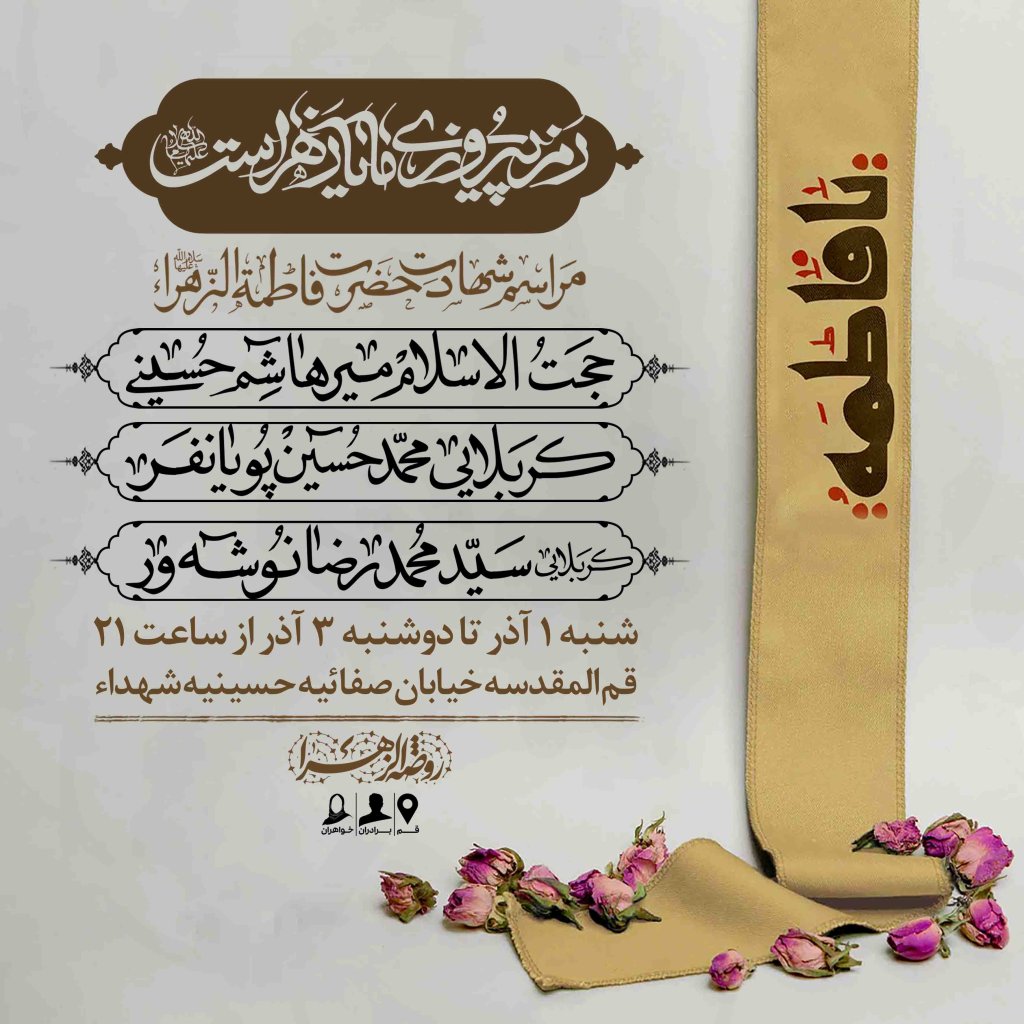 رمز پیروزی ما نام یا زهراست
سلام الله علیها
مراسم شهادت حضرت فاطمة الزهراء
سلام الله علیها
حجت الاسلام میرهاشم حسینی
کربلایی محمدحسین پویانفر
کربلایی سید محمدرضا نوشه ور
شنبه ۱ آذر تا دوشنبه ۳ آذر از ساعت ۲۱
قم المقدسه خیابان صفائیه حسینیه شهداء
روضة الزهرا
قم | برادران | خواهران
یا فاطمه